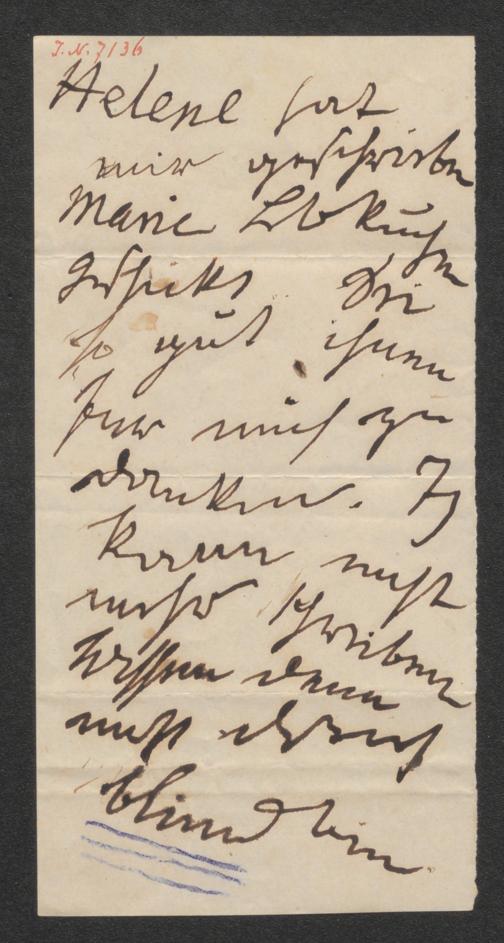 J.N. 7136
Helene hat
mir geschrieben
Marie Lebkuchen
geschickt Sei
so gut ihnen
für mich zu
danken. Ich
kann nicht
mehr schreiben
wissen denn
nicht daß ich
blind bin